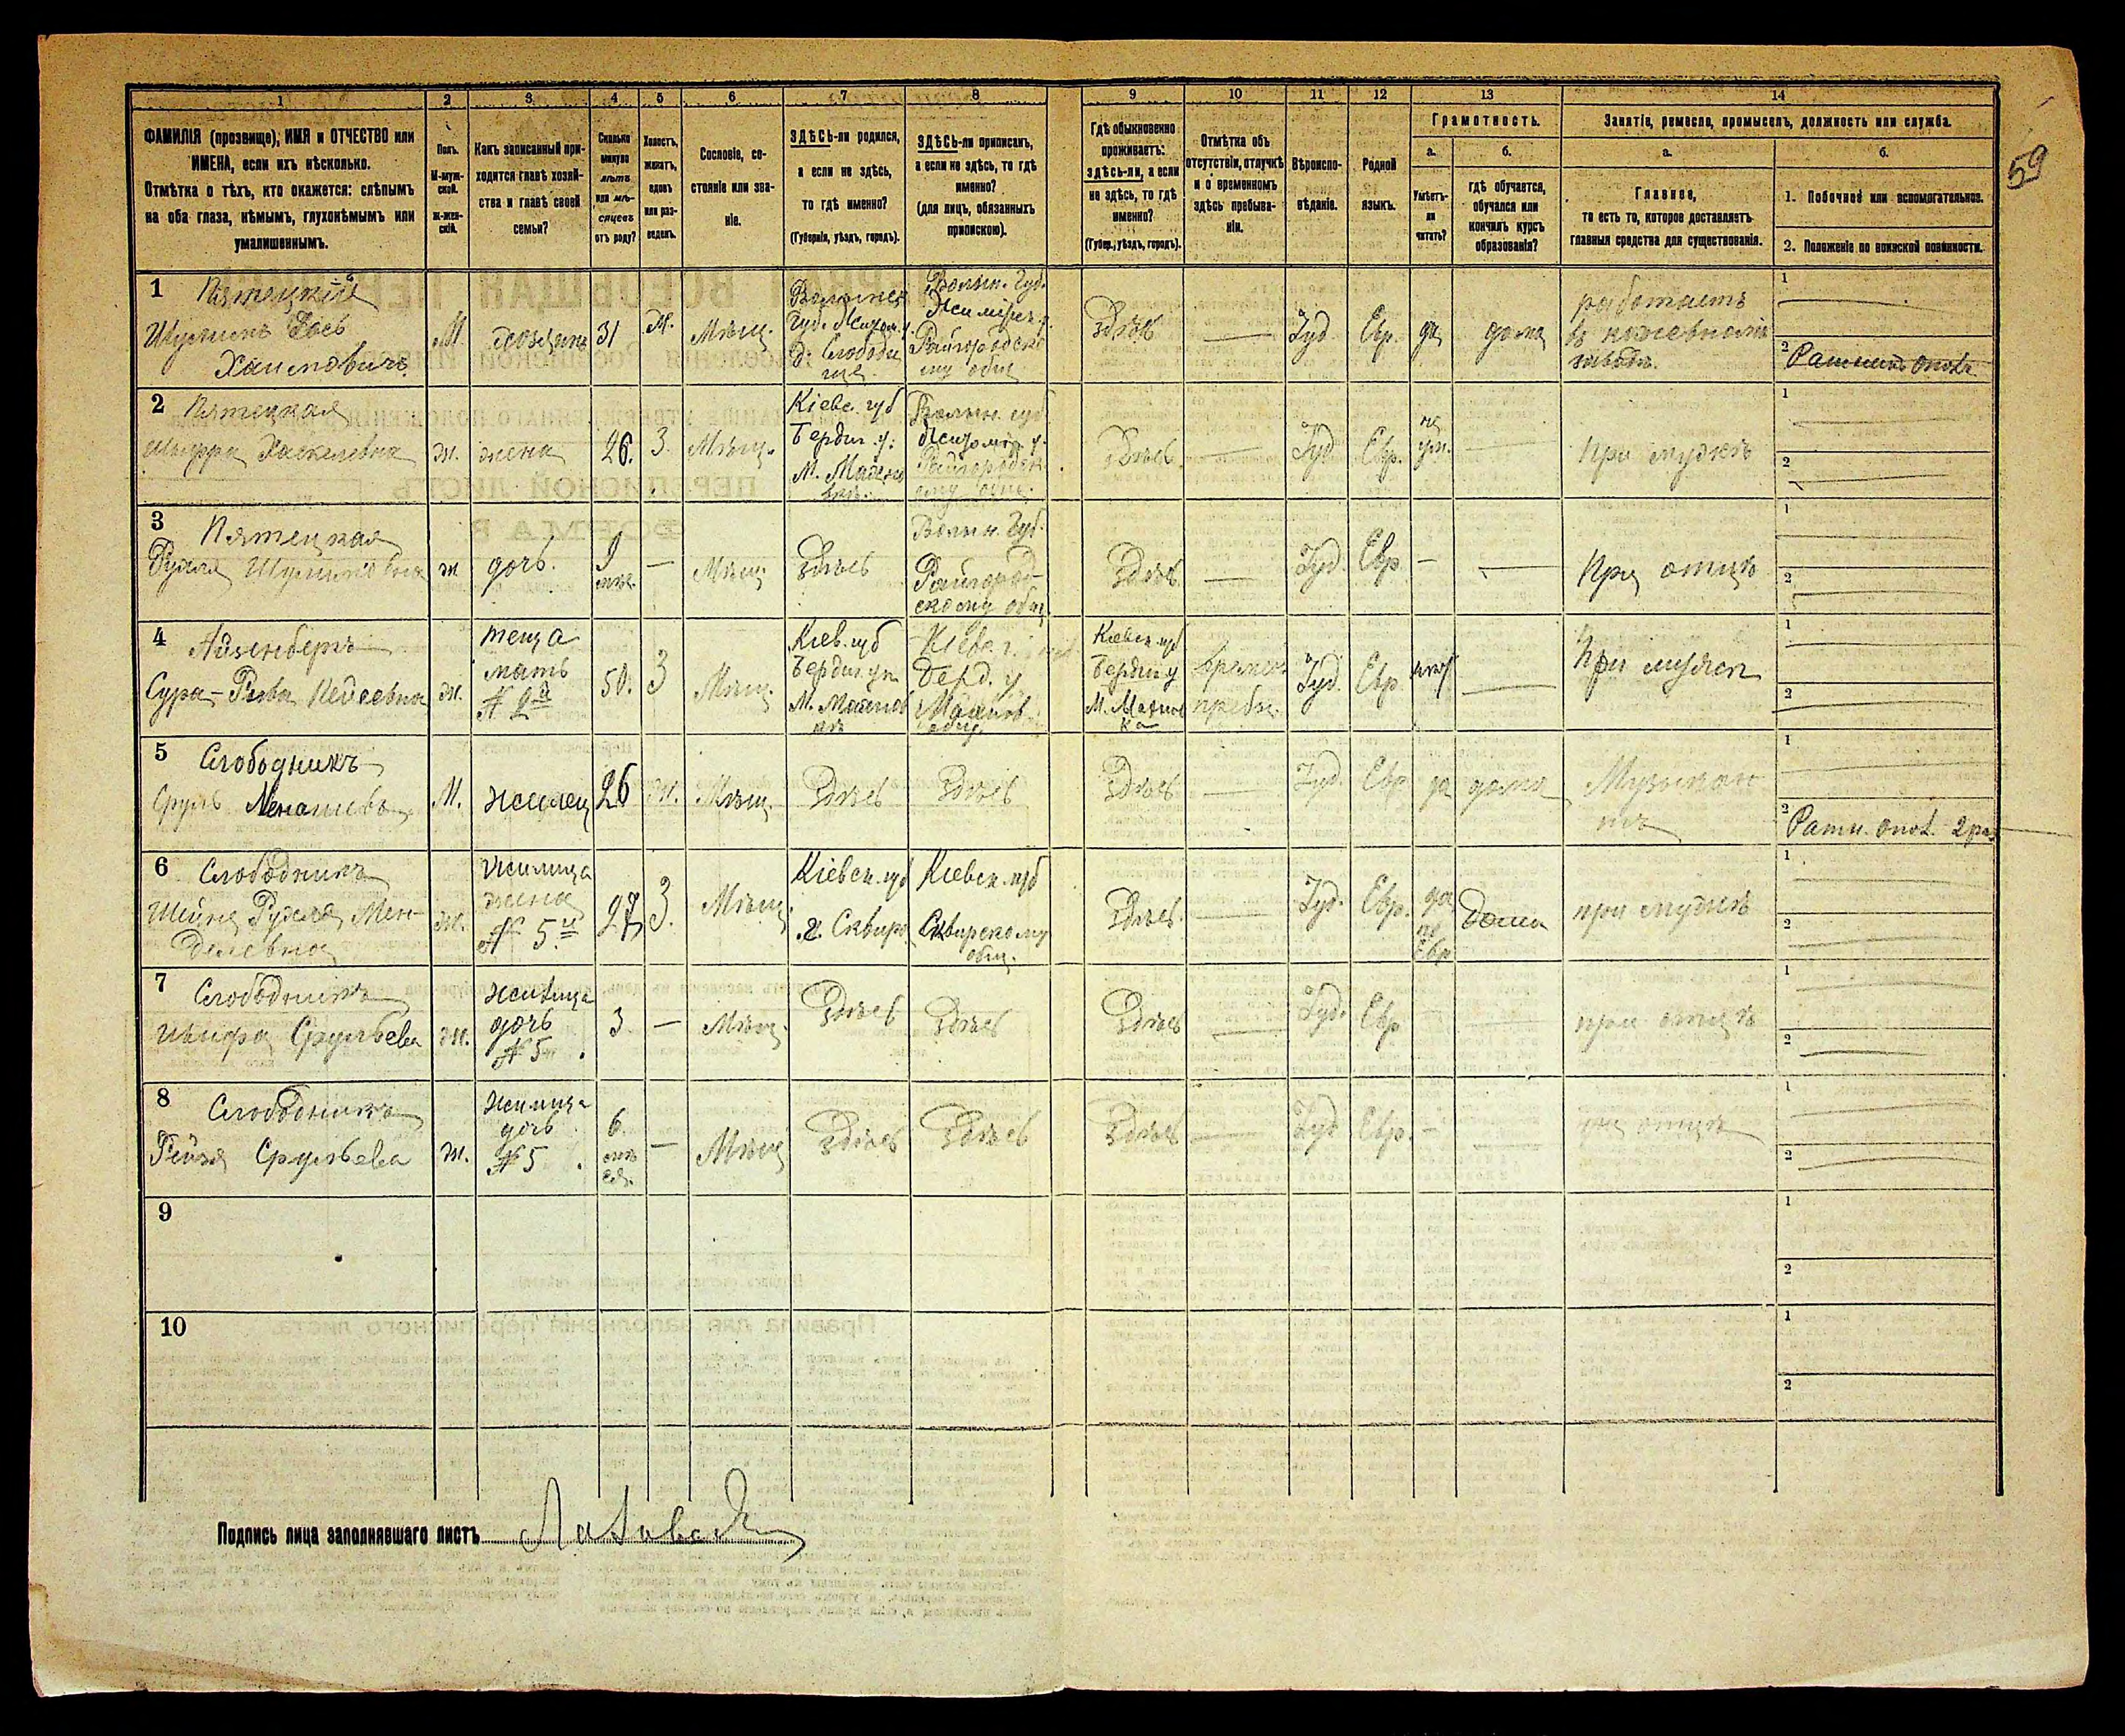 59
1 2 3 4 5 6 7 8 9 10 11 12 13 14
ФАМИЛІЯ (прозвище), ИМЯ и ОТЧЕСТВО или
ИМЕНА, если ихъ нѣсколько.
Отмѣтка о тѣхъ, кто окажется: слѣпымъ
на оба глаза, нѣмымъ, глухонѣмымъ или
умалишеннымъ.
Полъ.
М-муж-
ской.
ж-жен-
скій.
Какъ записанный при-
ходится главѣ хозяй-
ства и главѣ своей
семьи?
Сколько
минуло
лѣтъ
или мѣ-
сяцевъ
отъ роду?
Холостъ,
женатъ,
вдовъ
или раз-
веденъ.
Сословіе, со-
стояніе или зва-
ніе.
ЗДѢСЬ-ли родился,
а если не здѣсь,
то гдѣ именно?
(Губернія, уѣздъ, городъ).
ЗДѢСЬ-ли приписанъ,
а если не здѣсь, то гдѣ
именно?
(для лицъ, обязанныхъ
припискою).
Гдѣ обыкновенно
проживаетъ:
здѣсь-ли, а если
не здѣсь, то гдѣ
именно?
(Губер., уѣздъ, городъ).
Отмѣтка объ
отсутствіи, отлучкѣ
и о временномъ
здѣсь пребыва-
ніи.
Вѣроиспо-
вѣданіе.
Родной
языкъ.
Грамотность.
а.
Умѣетъ-
ли
читать?
б.
гдѣ обучается,
обучался или
кончилъ курсъ
образованія?
Занятіе, ремесло, промыселъ, должность или служба.
а.
Главное,
то есть то, которое доставляетъ
главныя средства для существованія.
б.
1. Побочное или вспомогательное.
2. Положеніе по воинской повинности.
1 Пятецкій
Шулимъ Іось
Хаимовичъ
М.
хозяинъ
31
Ж.
Мѣщ.
Волынск.
Губ. Жидом. у.
д. Слободи
ще
Волын. Губ.
Райгородско
му общ
Здѣсь
—
Іуд.
Евр.
да
дома
работаетъ
въ кожевномъ
заводѣ.
1
2 Ратникъ опол.
2 Пятецкая
Шифра Хаскелевна
ж.
жена
26.
З.
Мѣщ.
Кіевс. губ
Бердич. у.
М. Махнов
Волын. губ
Житом. у.
Здѣсь.
—
Іуд
Евр.
—
при мужѣ
1
2
3 Пятецкая
Рухля
ж
дочь.
9
мѣс.
—
Мѣщ.
Здѣсь
Волын. Губ.
Райгород-
скому общ
Здѣсь
—
Іуд.
Евр.
—
—
При отцѣ
1
2
4 Айзенбергъ
Сура-Ривка
ж.
теща
мать
№ 2й
50.
З
Мѣщ.
Кіев. губ
Бердич. у.
М. Махнов
Кіев. г.
Берд. у
Махнов.
общ.
Кіевск. губ
Бердич у
М. Махнов
ка
времен.
пребы.
Іуд.
Евр.
—
При мужѣ
1
2
5 Слободникъ
Сруль
М.
жилец
26
ж.
Мѣщ.
Здѣсь
Здѣсь
Здѣсь
—
Іуд.
Евр
да
дома
Музыкан
тъ
1
2 Ратн. опол. 2 раз
6 Слободникъ
Шейна Рухля Мен-
делевна
ж.
жилица
жена
№ 5й
27
З.
Мѣщ.
Кіевск. губ
г. Сквира
Кіевск. губ
Сквирскому
общ.
Здѣсь.
—
Іуд.
Евр.
да
по
Евр
Дома
при мужѣ
1
2
7 Слободникъ
Шифра Срульева
ж.
жилица
дочь
№ 5.
3
—
Мѣщ.
Здѣсь
Здѣсь
Здѣсь
—
Іуд.
Евр
—
—
при отцѣ
1
2
8 Слободникъ
Рейзя Срульева
ж.
жилица
дочь
№ 5.
6
—
Мѣщ
Здѣсь
Здѣсь
Здѣсь
—
Іуд
Евр.
—
—
при отцѣ
1
2
9
1
2
10
1
2
Подпись лица заполнявшаго листъ